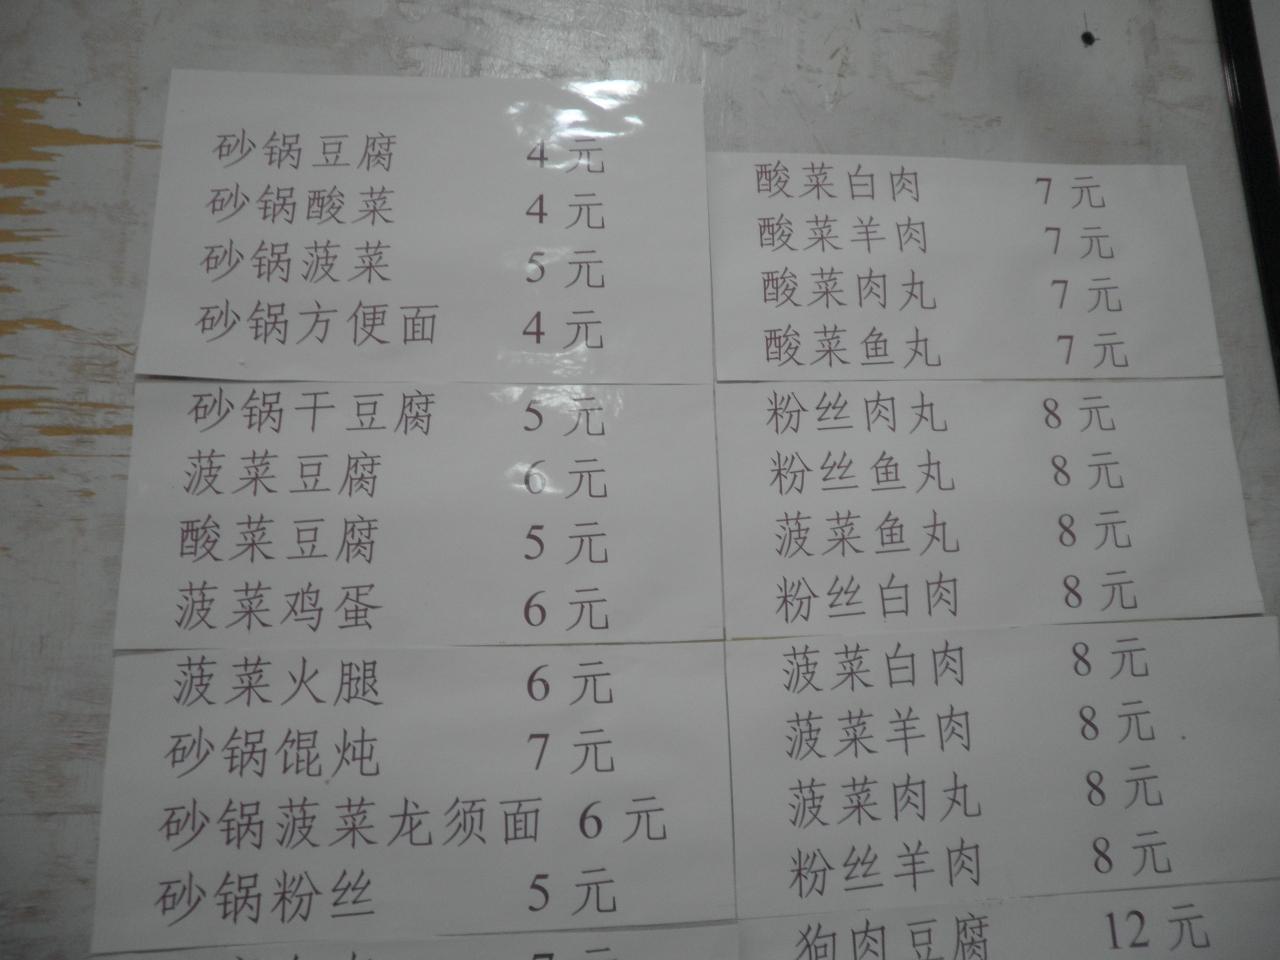 砂锅豆腐 4元
砂锅酸菜 4元
砂锅菠菜 5元
砂锅方便面 4元
砂锅干豆腐 5元
菠菜豆腐 6元
酸菜豆腐 5元
菠菜鸡蛋 6元
菠菜火腿 6元
砂锅馄炖 7元
砂锅菠菜龙须面 6元
砂锅粉丝 5元
7元
酸菜白肉 7元
酸菜羊肉 7元
酸菜肉丸 7元
酸菜鱼丸 7元
粉丝肉丸 8元
粉丝鱼丸 8元
菠菜鱼丸 8元
粉丝白肉 8元
菠菜白肉 8元
菠菜羊肉 8元
菠菜肉丸 8元
粉丝羊肉 8元
狗肉豆腐 12元